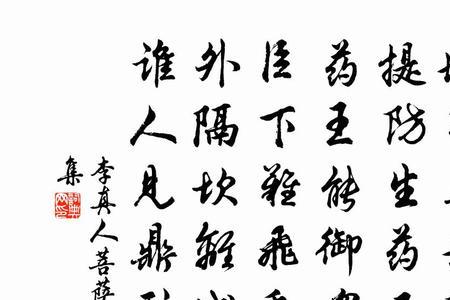 提防生药
药王能御
臣下难飞
外隔坎离
谁人见鼎
李真人菩萨
集